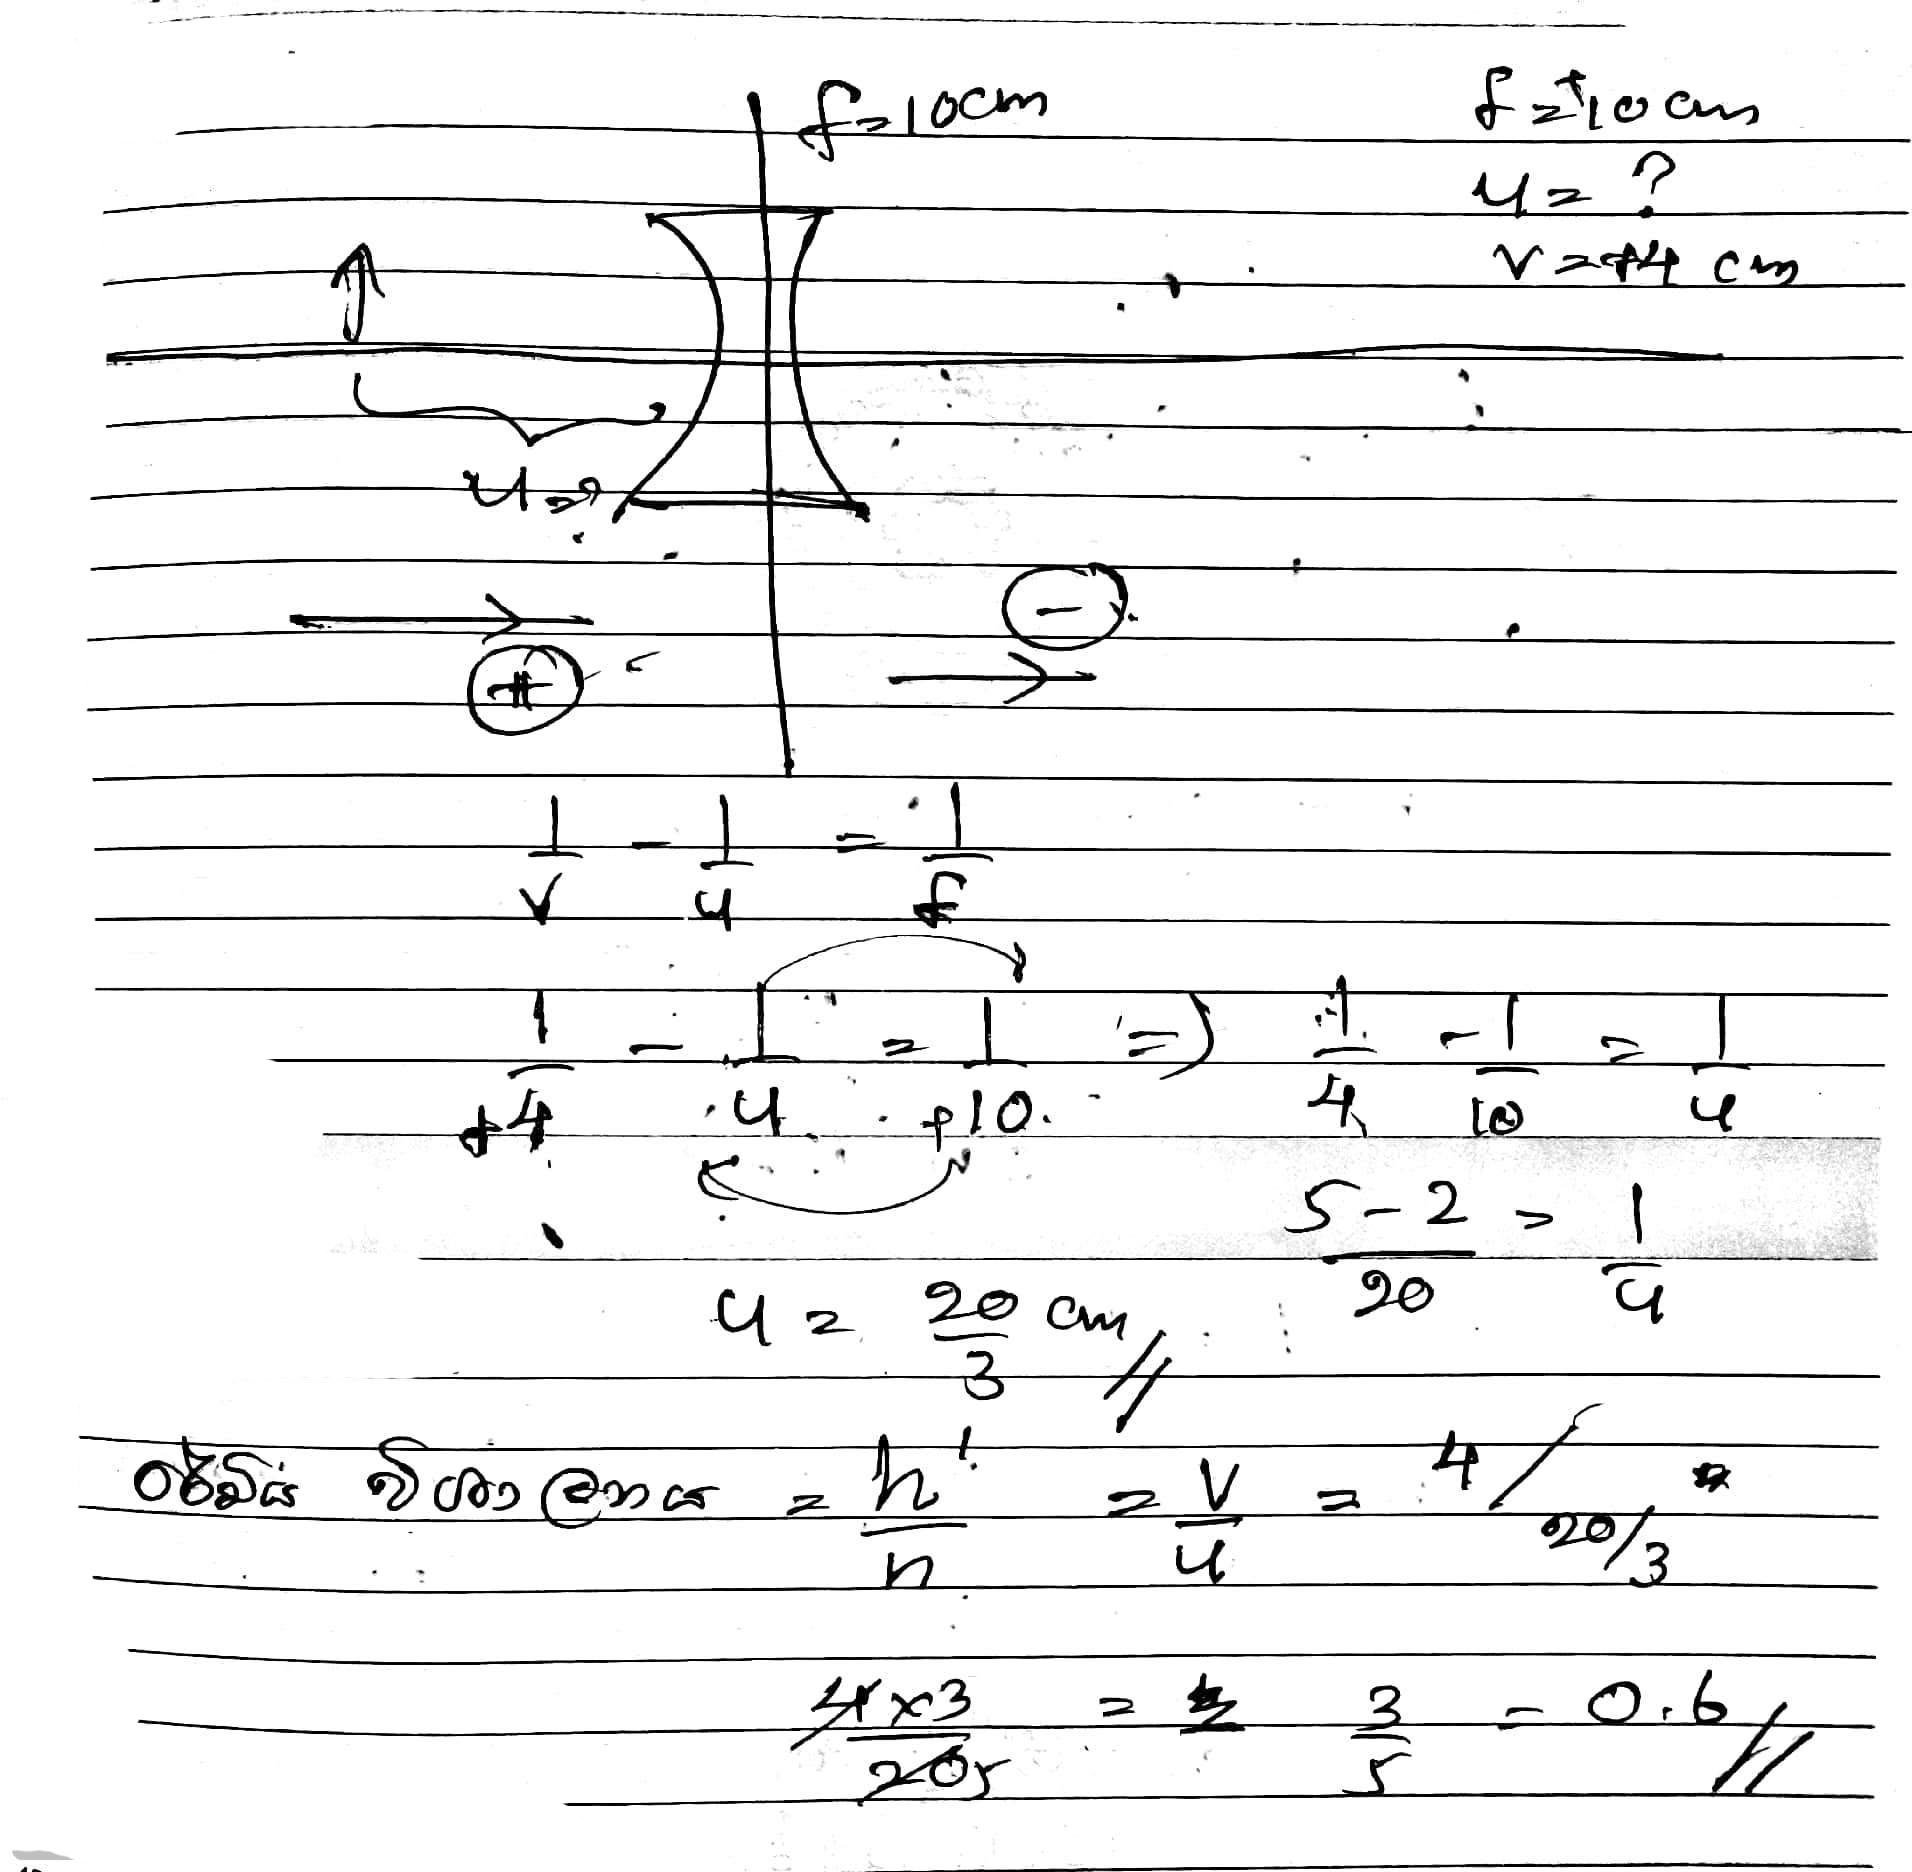 f=10cm
f=+10cm
u=?
v=+4 cm
u=?
-
+
1/v - 1/u = 1/f
1/+4 - 1/u = 1/+10 => 1/4 - 1/10 = 1/u
5-2/20 = 1/u
u = 20/3 cm //
රේඛීය විශාලනය = h'/h = v/u = 4/20/3
4x3/20 5 = 3/5 = 0.6 //